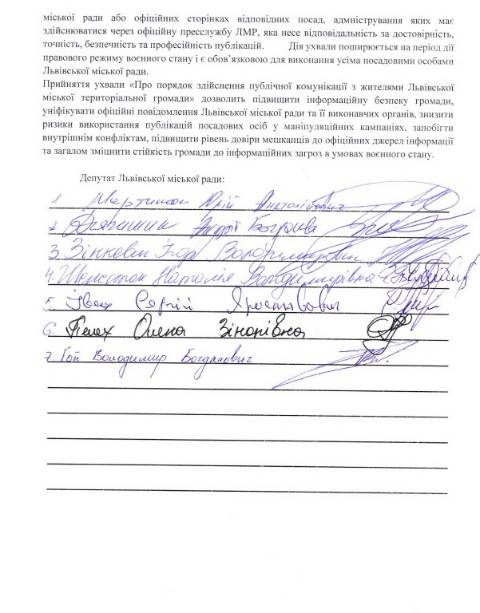 міської ради або офіційних сторінках відповідних посад, адміністрування яких має
здійснюватися через офіційну пресслужбу ЛМР, яка несе відповідальність за достовірність,
точність, безпечність та професійність публікацій. Дія ухвали поширюється на період дії
правового режиму воєнного стану і є обов'язковою для виконання усіма посадовими особами
Львівської міської ради.
Прийняття ухвали «Про порядок здійснення публічної комунікації з жителями Львівської
міської територіальної громади» дозволить підвищити інформаційну безпеку громади,
уніфікувати офіційні повідомлення Львівської міської ради та її виконавчих органів, знизити
ризики використання публікацій посадових осіб у маніпуляційних кампаніях, запобігти
внутрішнім конфліктам, підвищити рівень довіри мешканців до офіційних джерел інформації
та загалом зміцнити стійкість громади до інформаційних загроз в умовах воєнного стану.
Депутат Львівської міської ради:
1. Мартинюк Юрій Анатолійович
2. Андрій
3. Зінкевич Ігор Володимирович
4. Шелестак Наталія Володимирівна
5. Івах Сергій Ярославович
6. Пелех Олена Зіновіївна
7. Гой Володимир Богданович